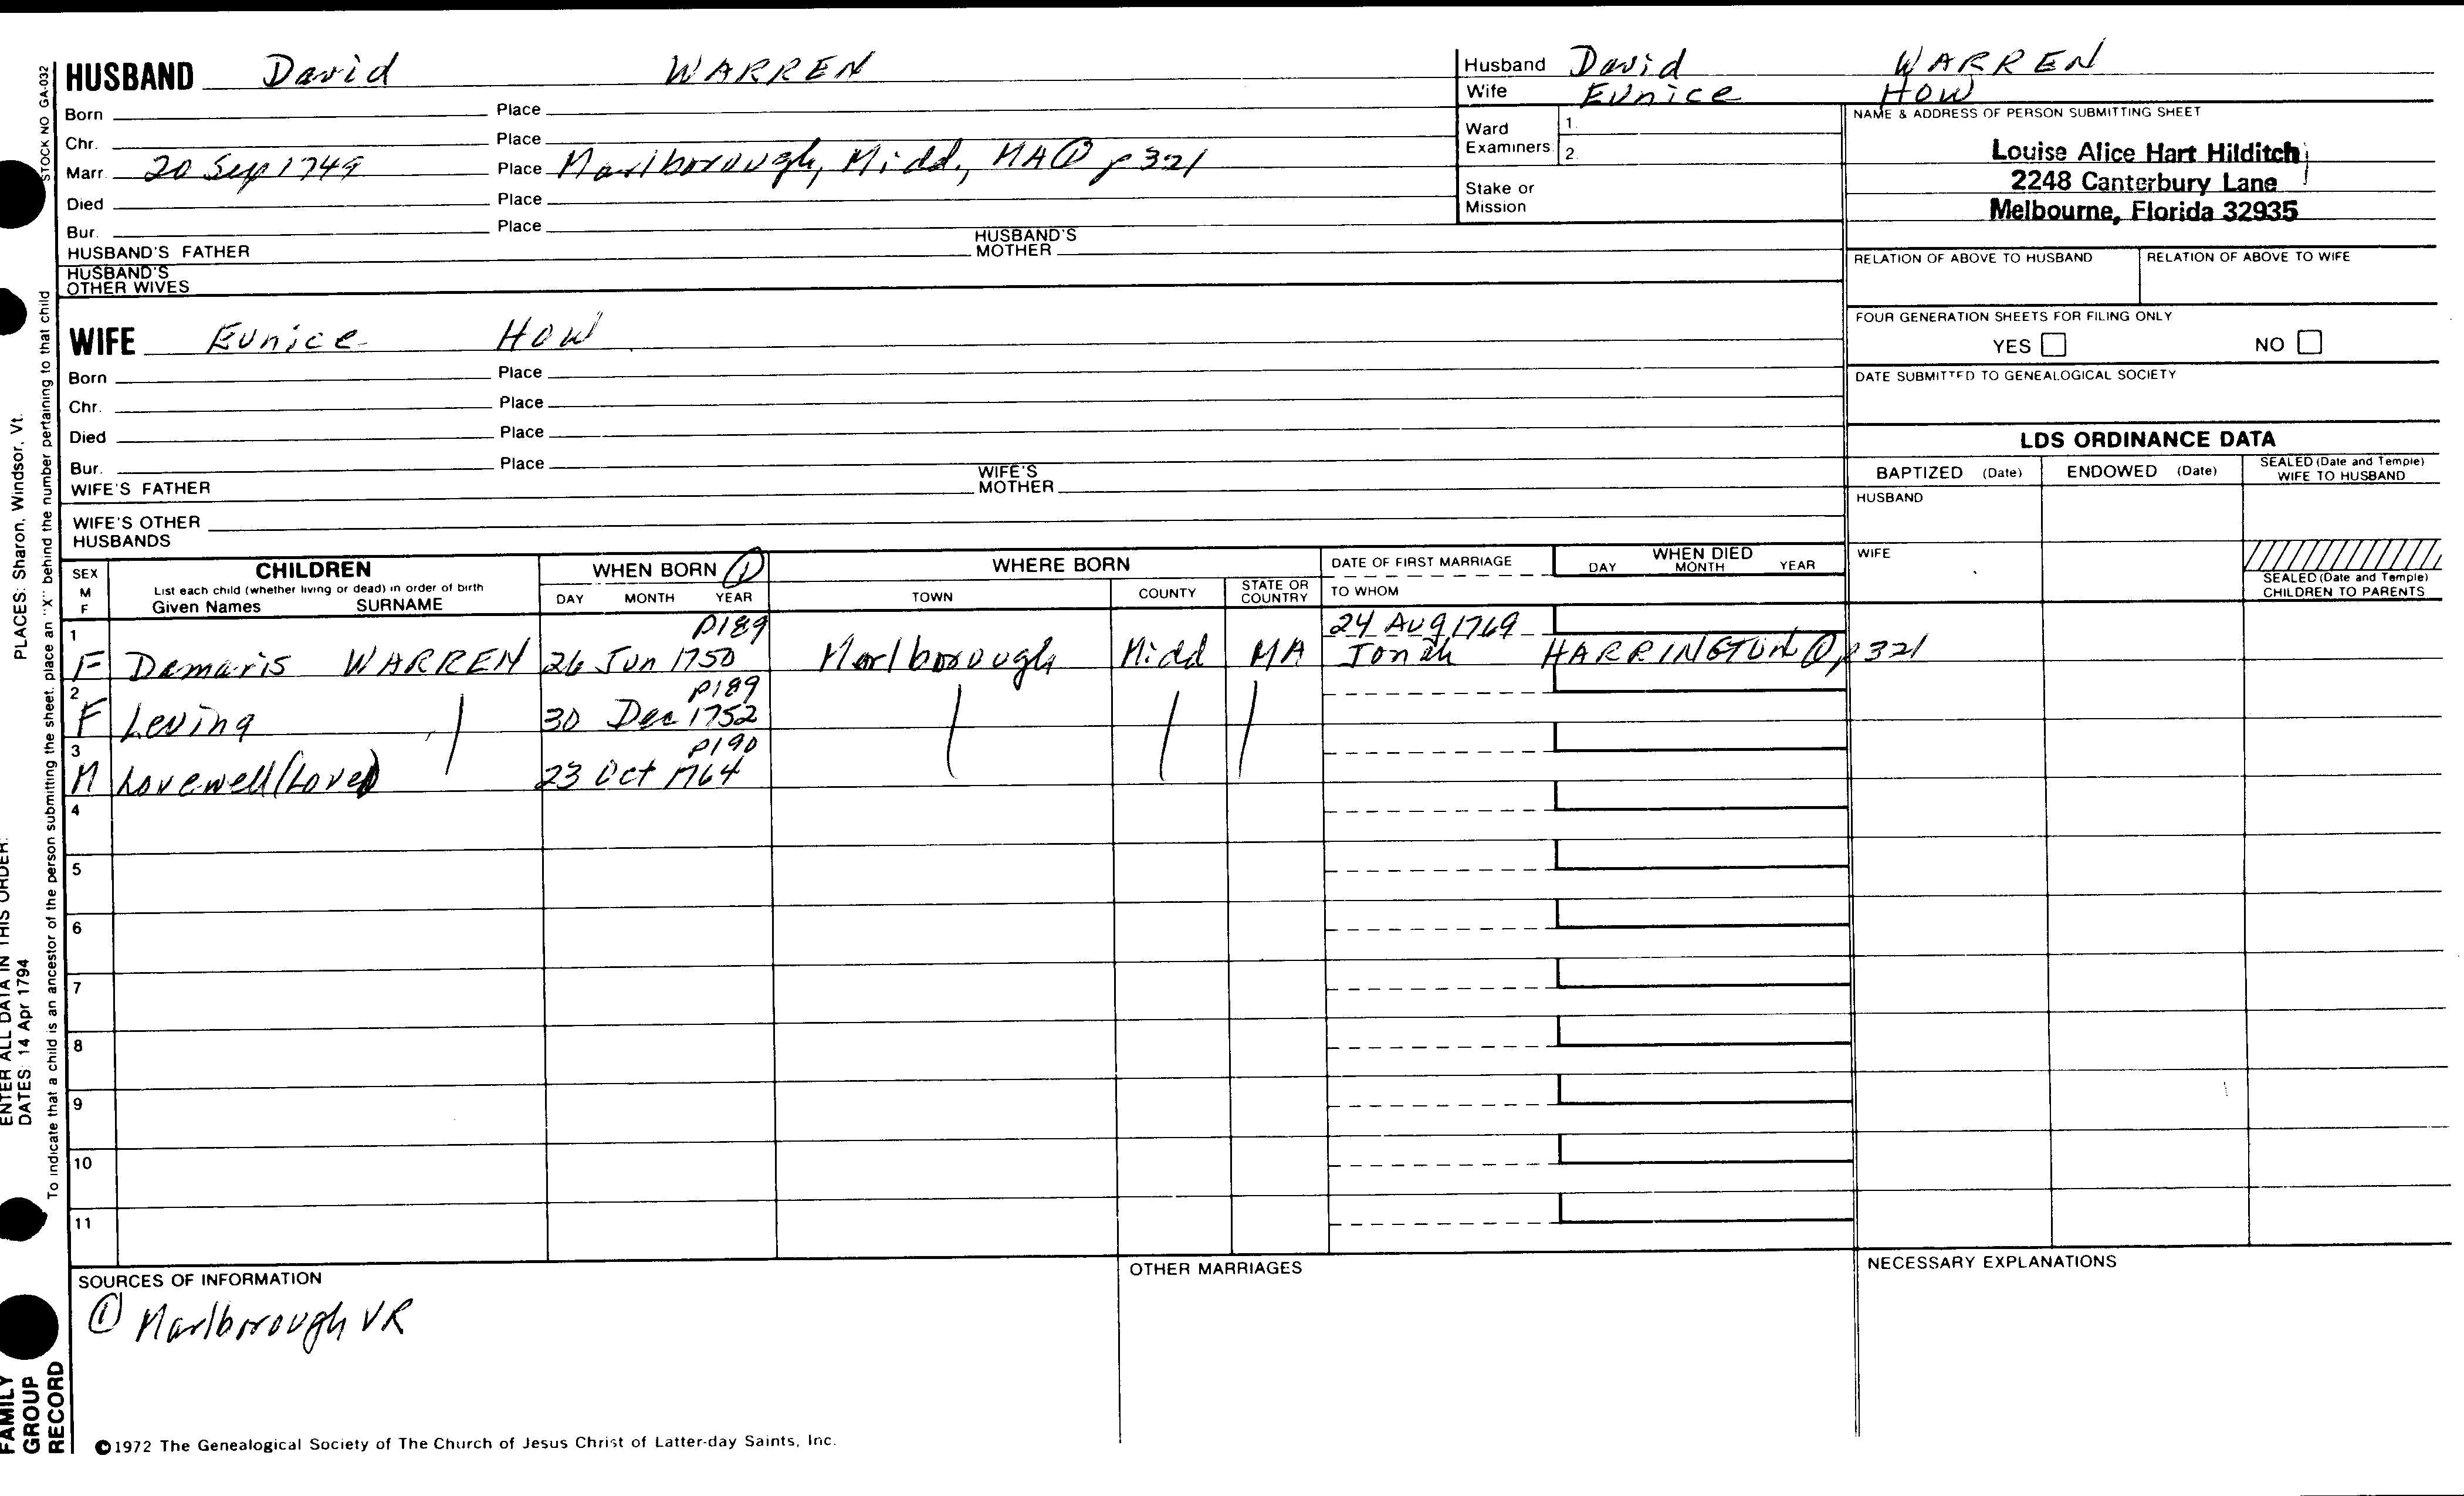 HUSBAND David WARREN
Born Place
Chr. Place
Marr. 20 Sep 1749 Place Marlborough, Midd., MA ① p 321
Died Place
Bur. Place
HUSBAND'S FATHER HUSBAND'S MOTHER
HUSBAND'S OTHER WIVES
WIFE Eunice HOW
Born Place
Chr. Place
Died Place
Bur. Place
WIFE'S FATHER WIFE'S MOTHER
WIFE'S OTHER HUSBANDS
Husband David WARREN
Wife Eunice HOW
Ward Examiners 1. 2.
Stake or Mission
NAME & ADDRESS OF PERSON SUBMITTING SHEET
Louise Alice Hart Hilditch
2248 Canterbury Lane
Melbourne, Florida 32935
RELATION OF ABOVE TO HUSBAND RELATION OF ABOVE TO WIFE
FOUR GENERATION SHEETS FOR FILING ONLY
YES NO
DATE SUBMITTED TO GENEALOGICAL SOCIETY
LDS ORDINANCE DATA
BAPTIZED (Date) ENDOWED (Date) SEALED (Date and Temple) WIFE TO HUSBAND
HUSBAND
WIFE
SEALED (Date and Temple) CHILDREN TO PARENTS
SEX M F
CHILDREN
List each child (whether living or dead) in order of birth
Given Names SURNAME
WHEN BORN ①
DAY MONTH YEAR
WHERE BORN
TOWN COUNTY STATE OR COUNTRY
DATE OF FIRST MARRIAGE
TO WHOM
WHEN DIED
DAY MONTH YEAR
1 p189 24 Aug 1769
F Damaris WARREN 26 Jun 1750 Marlborough Midd MA Jonah HARRINGTON ① p 321
2 p189
F Leving 30 Dec 1752
3 p190
M Lovewell (Love) 23 Oct 1764
4
5
6
7
8
9
10
11
SOURCES OF INFORMATION
① Marlborough VR
OTHER MARRIAGES
NECESSARY EXPLANATIONS
©1972 The Genealogical Society of The Church of Jesus Christ of Latter-day Saints, Inc.
STOCK NO GA-032
To indicate that a child is an ancestor of the person submitting the sheet, place an "X" behind the number pertaining to that child
PLACES: Sharon, Windsor, Vt.
ENTER ALL DATA IN THIS ORDER:
DATES: 14 Apr 1794
FAMILY
GROUP
RECORD